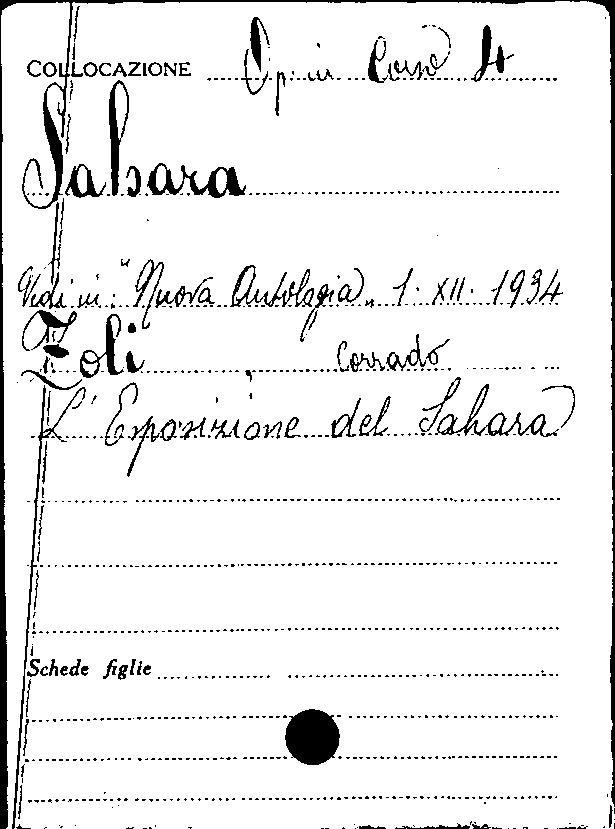 COLLOCAZIONE Op. in Corso 4
Sahara
Vedi in: "Nuova Antologia„ 1. XII. 1934
Zoli, Corrado
L'Esposizione del Sahara
Schede figlie